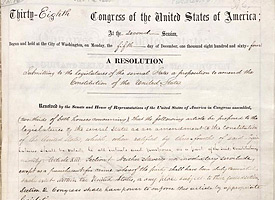 Thirty-Eighth Congress of the United States of America;
At the second Session,
Begun and held at the City of Washington, on Monday, the fifth day of December, one thousand eight hundred and sixty-four
A RESOLUTION
Submitting to the legislatures of the several States a proposition to amend the
Constitution of the United States.
Resolved by the Senate and House of Representatives of the United States of America in Congress assembled,
(two-thirds of both houses concurring), that the following article be proposed to the
legislatures of the several States as an amendment to the constitution
of the United States, which, when ratified by three-fourths of said
legislatures shall be valid, to all intents and purposes, as a part of the said Constitution
namely: Article XIII. Section 1. Neither slavery nor involuntary servitude,
except as a punishment for crime whereof the party shall have been duly
convicted, shall exist within the United States, or any place subject to their jurisdiction.
Section 2. Congress shall have power to enforce this article by appropriate